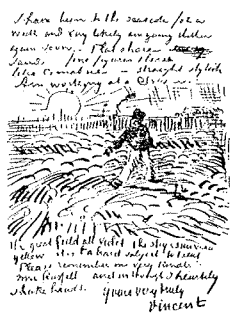 I have been to the seaside for a
week and very likely am going thither
again soon. — Flat shore
sands — fine figures there
like Cimabue — straight stylish
Am working at a Sower.
the great field all violet the sky & sun very
yellow. it is a hard subject to treat.
Please remember me very kindly to
mrs Russell and in thought I heartily
shake hands.
Yours very truly
Vincent